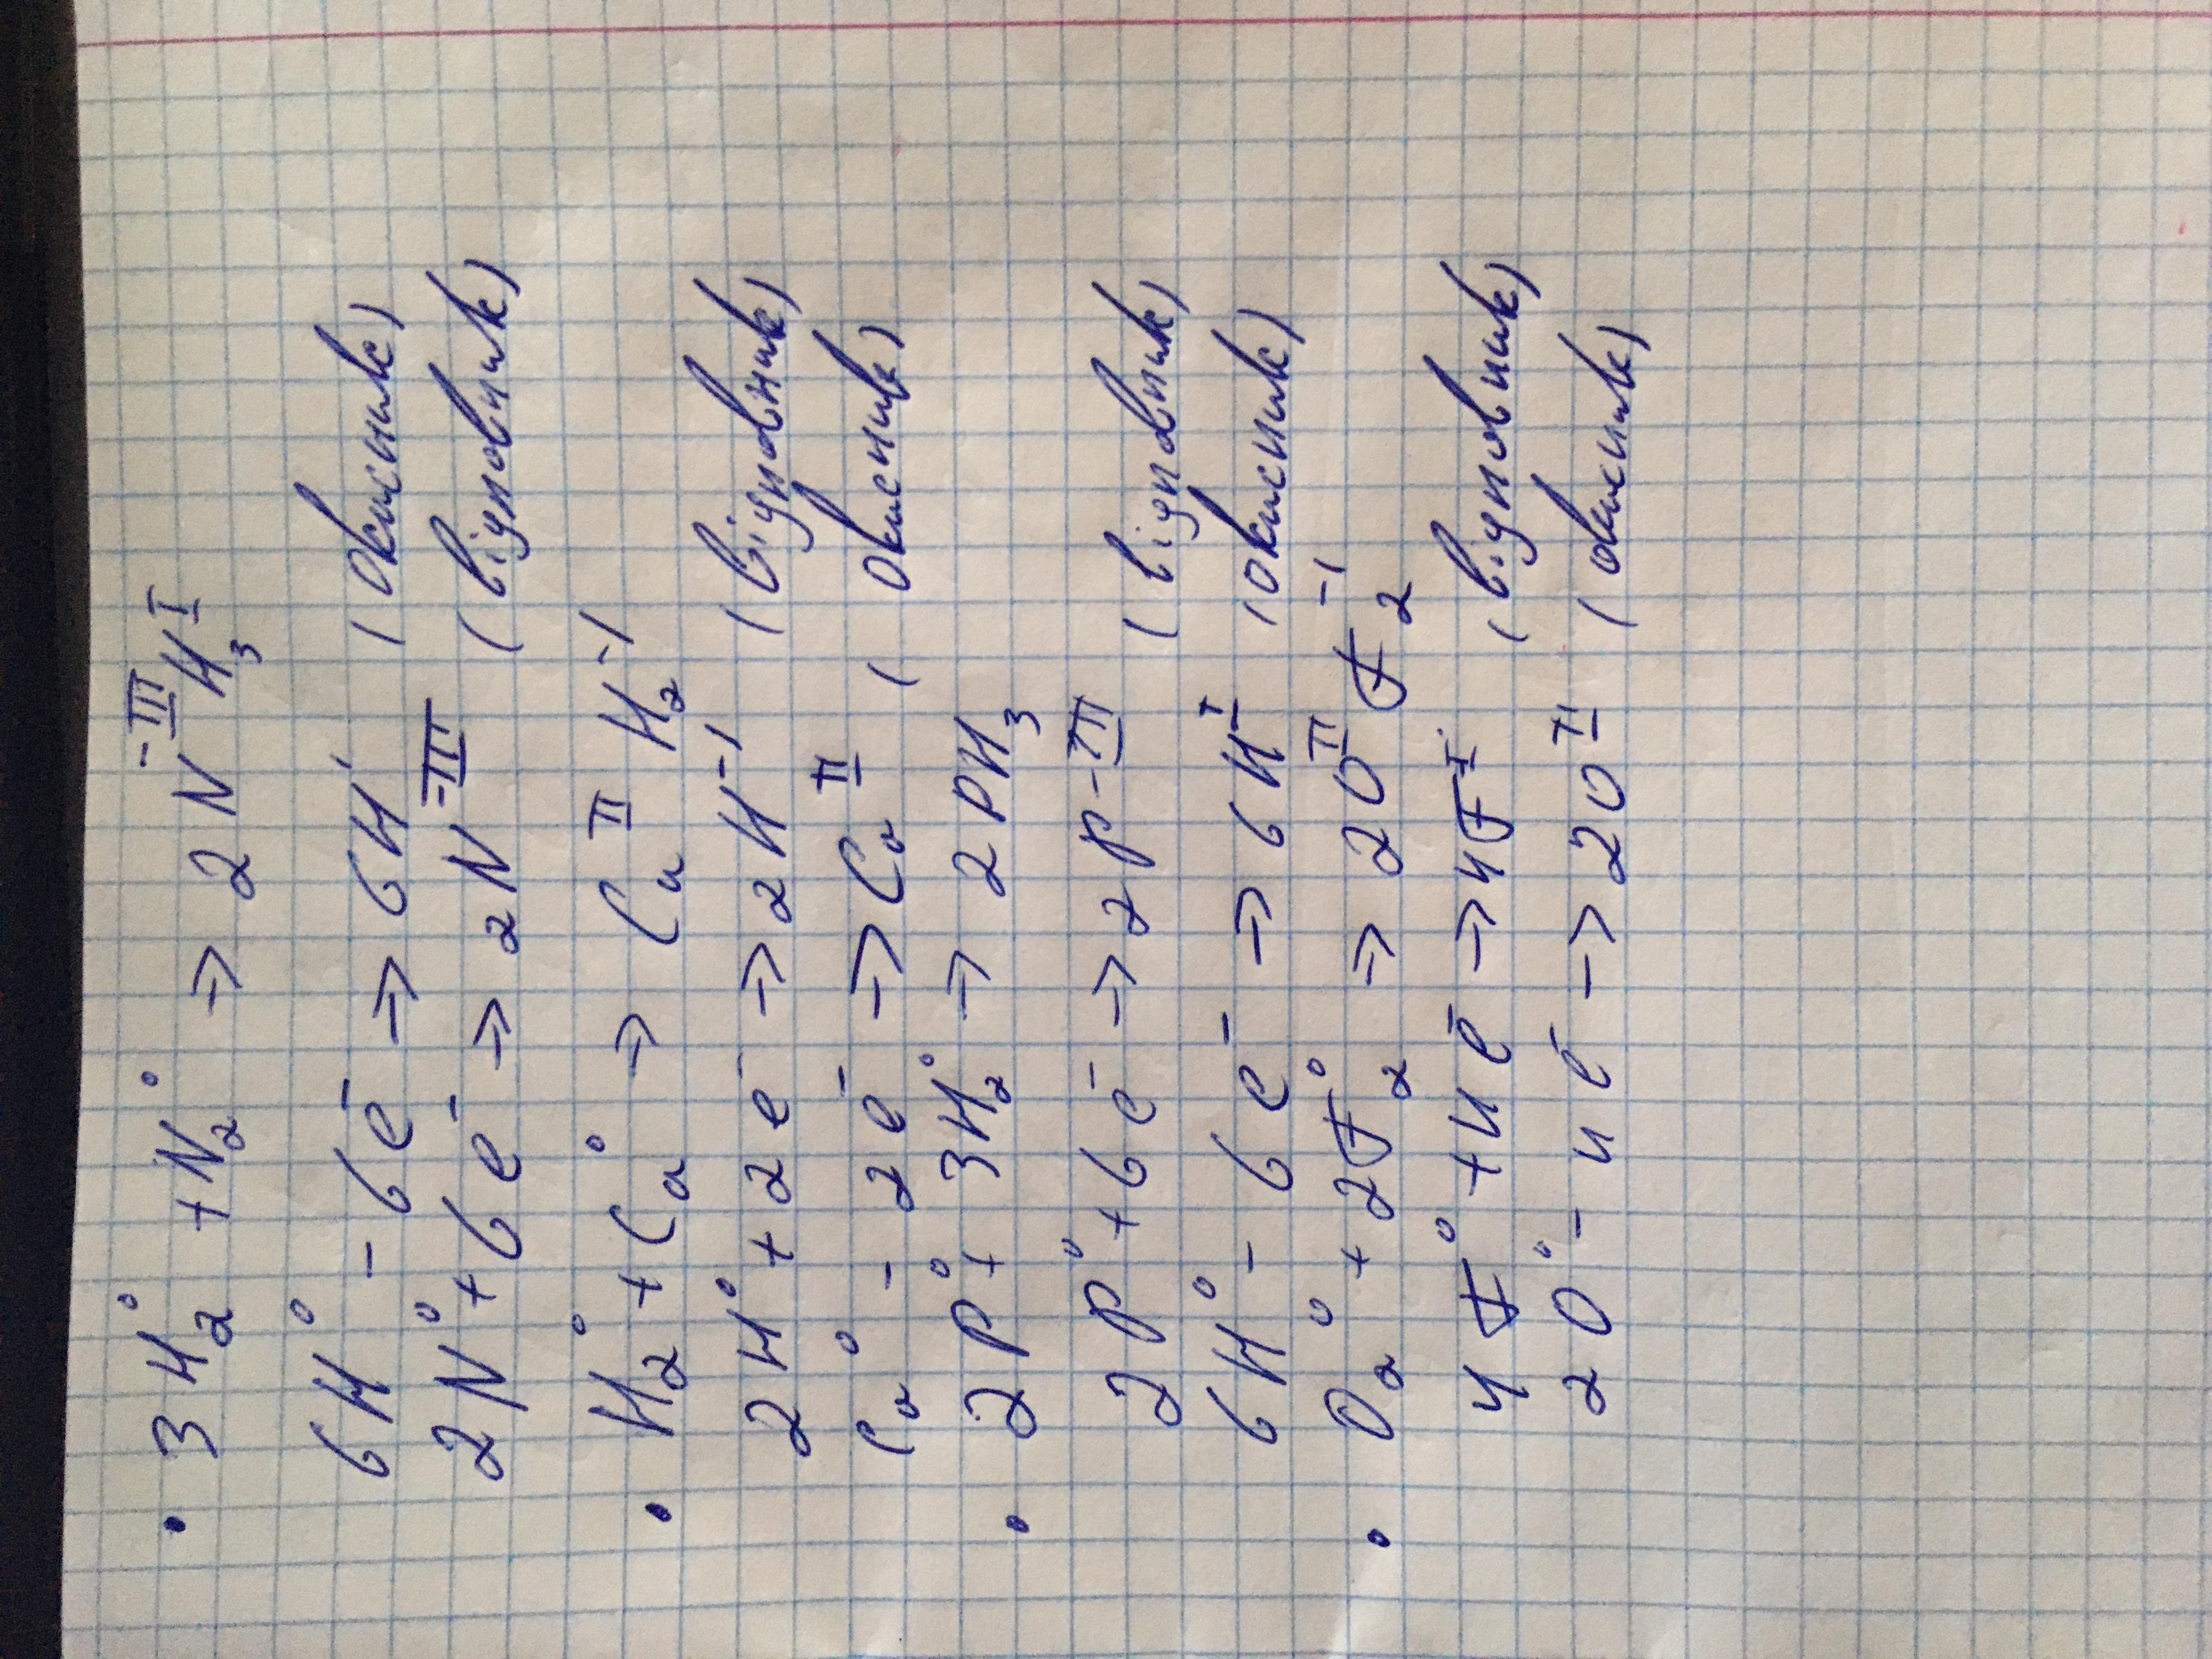 • 3H₂⁰ + N₂⁰ → 2N⁻ᴵᴵᴵH₃ᴵ
6H⁰ - 6e⁻ → 6H¹ (окисник)
2N⁰ + 6e⁻ → 2N⁻ᴵᴵᴵ (відновник)
• H₂⁰ + Ca⁰ → CaᴵᴵH₂⁻¹
2H⁰ + 2e⁻ → 2H⁻¹ (відновник)
Ca⁰ - 2e⁻ → Caᴵᴵ (окисник)
• 2P⁰ + 3H₂⁰ → 2PH₃
2P⁰ + 6e⁻ → 2P⁻ᴵᴵᴵ (відновник)
6H⁰ - 6e⁻ → 6Hᴵ (окисник)
• O₂⁰ + 2F₂⁰ → 2OᴵᴵF₂⁻¹
4F⁰ + 4e⁻ → 4F⁻ᴵ (відновник)
2O⁰ - 4e⁻ → 2Oᴵᴵ (окисник)